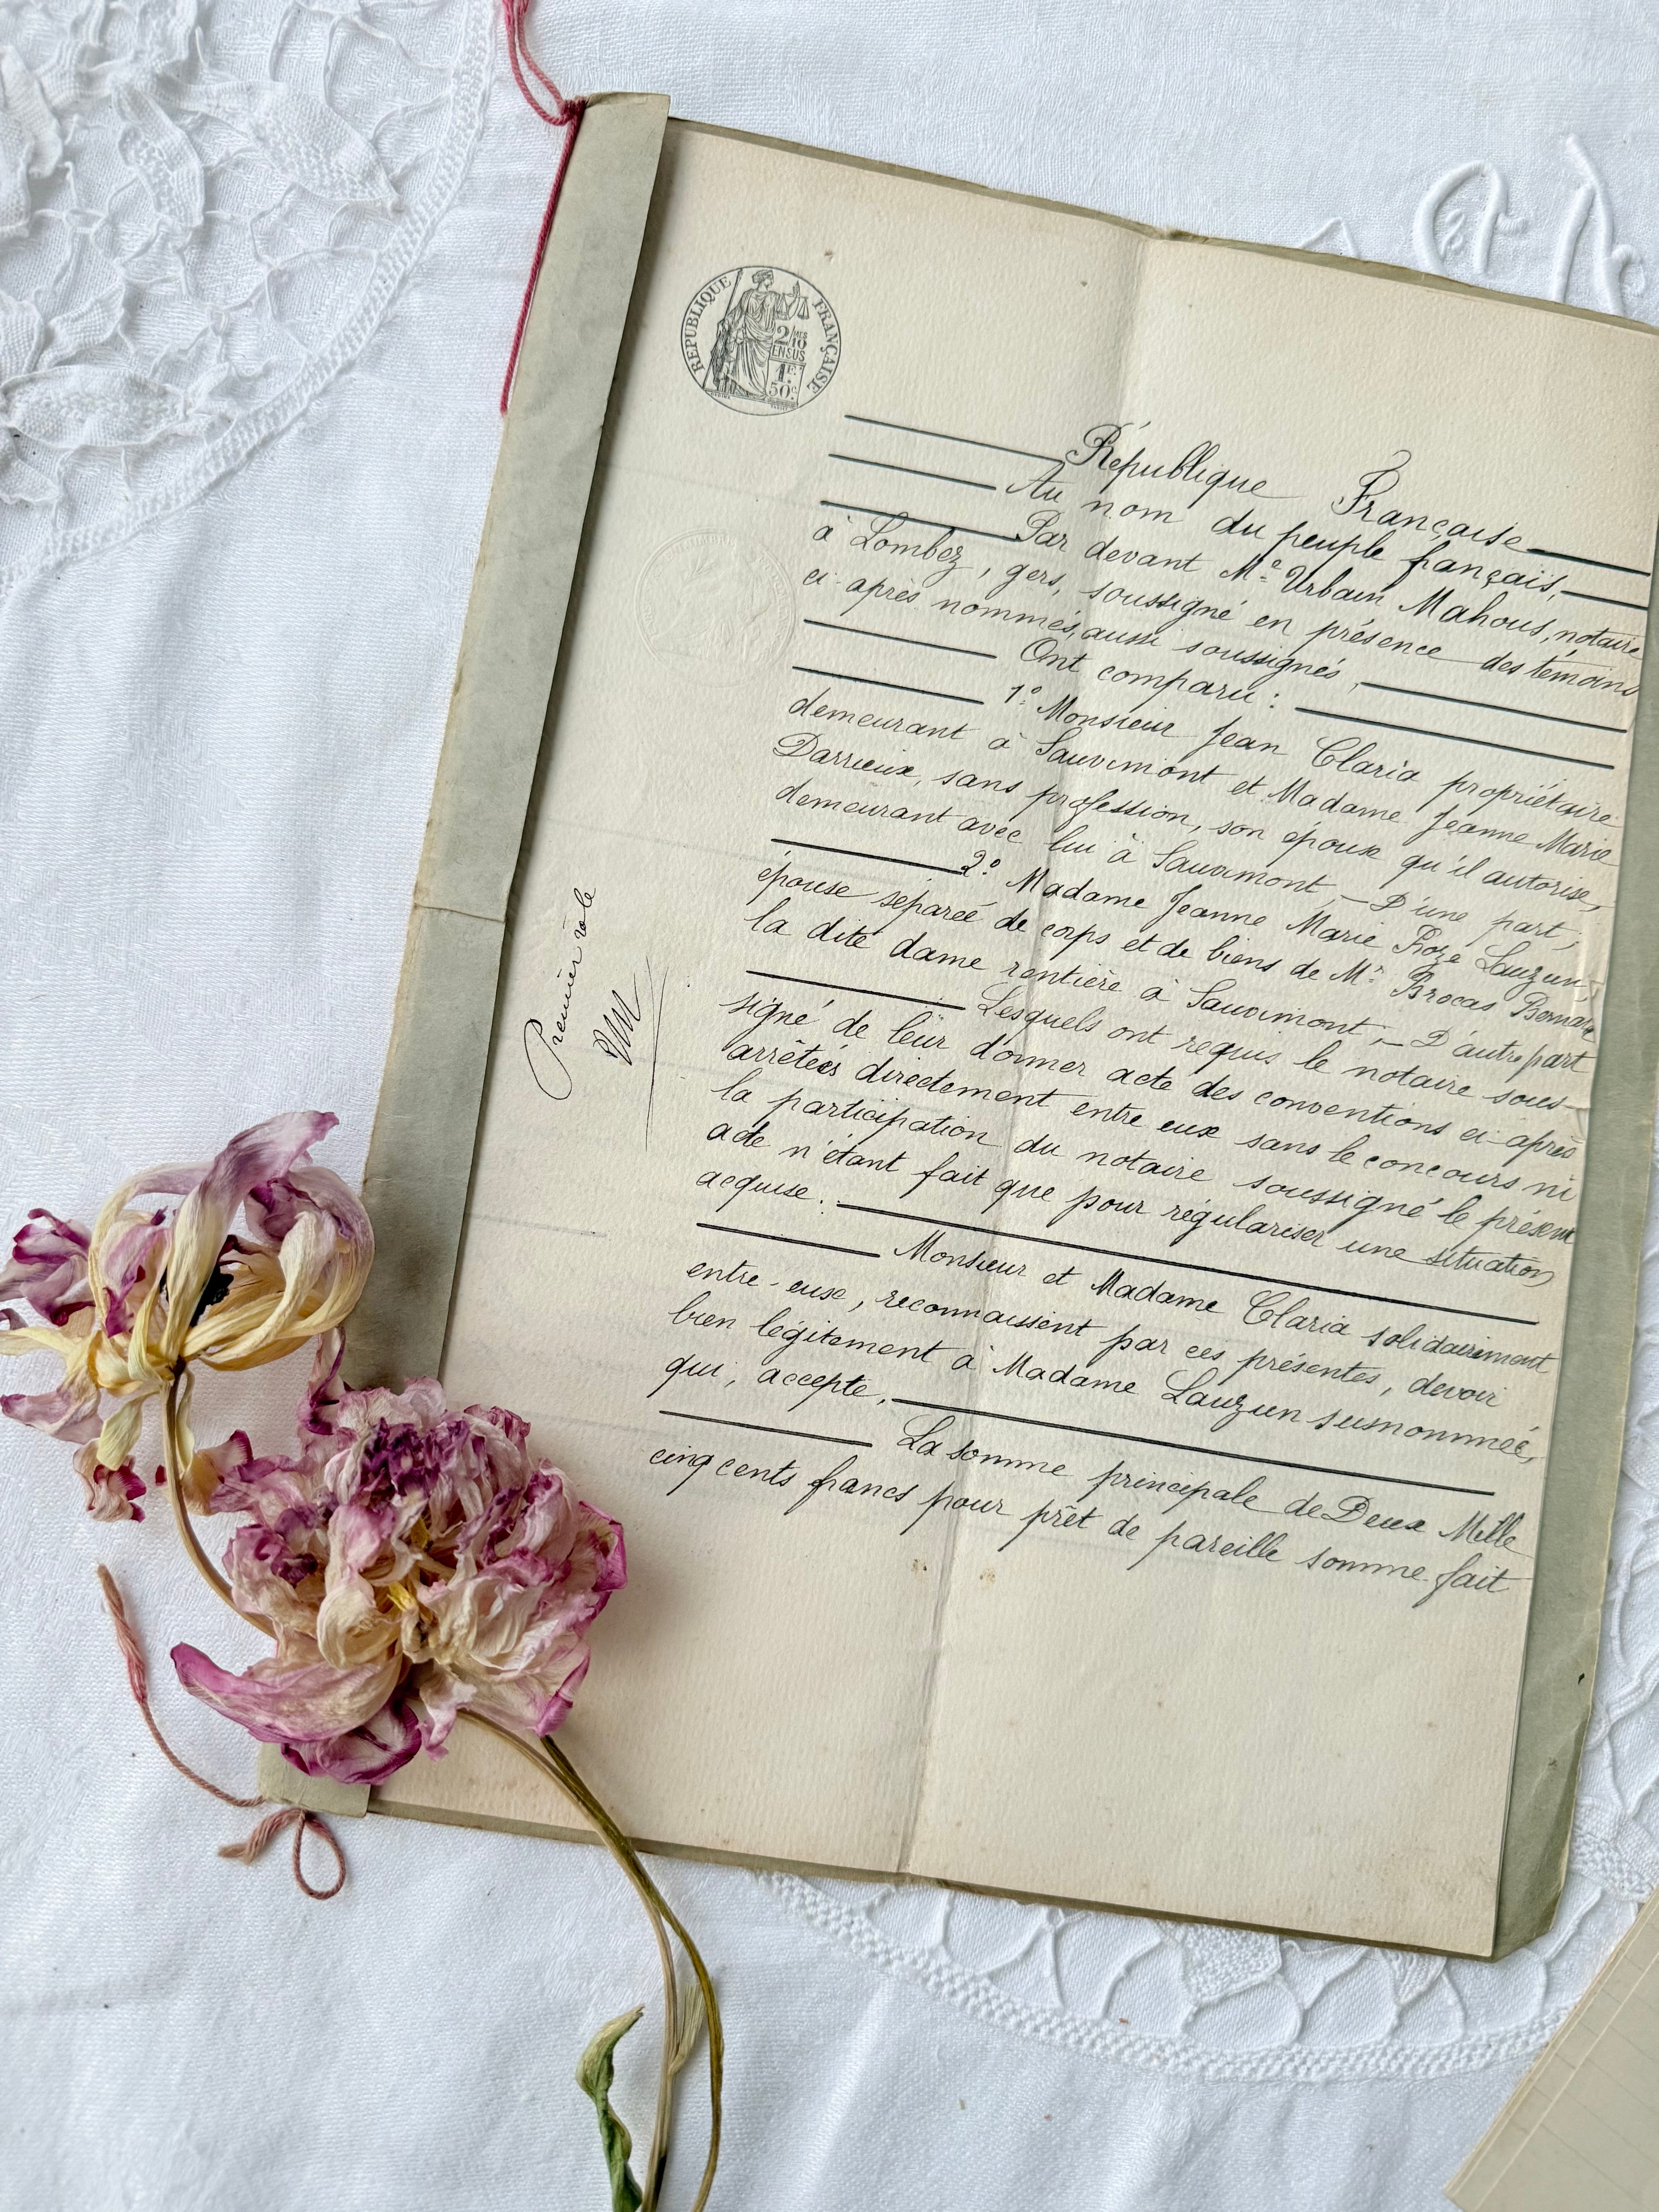 RÉPUBLIQUE FRANÇAISE
2/10 EN SUS
1F. 50c.
République Française
Au nom du peuple français,
Par devant Me Urbain Mahous, notaire
à Lombez, gers, soussigné en présence des témoins
ci-après nommés, aussi soussignés,
Ont comparu:
1º Monsieur Jean Claria propriétaire
demeurant à Sauvimont et Madame Jeanne Marie
Darrieux, sans profession, son épouse qu'il autorise,
demeurant avec lui à Sauvimont, — D'une part,
2º Madame Jeanne Marie Roze Lauzun,
épouse séparée de corps et de biens de Mr. Brocas Bernard
la dite dame rentière à Sauvimont, — D'autre part
Lesquels ont requis le notaire sous-
signé de leur donner acte des conventions ci-après
arrêtées directement entre eux sans le concours ni
la participation du notaire soussigné le présent
acte n'étant fait que pour régulariser une situation
acquise.
Monsieur et Madame Claria solidairement
entre-eux, reconnaissent par ces présentes, devoir
bien légitement à Madame Lauzun susnommée,
qui, accepte,
La somme principale de Deux Mille
cinq cents francs pour prêt de pareille somme fait
Premier rôle